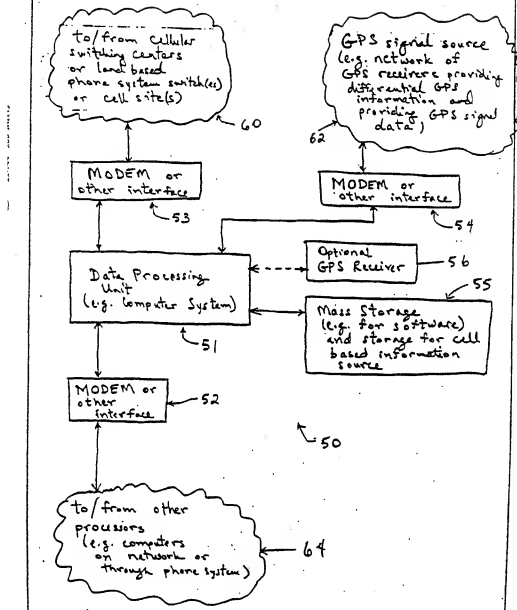 to/from Cellular
switching centers
or land based
phone system switch(es)
or cell site(s)
60
GPS signal source
(e.g. network of
GPS receivers providing
differential GPS
information and
providing GPS signal
data)
62
MODEM or
other interface
53
MODEM or
other interface
54
Optional
GPS Receiver
56
55
Data Processing
Unit
(e.g. Computer System)
51
Mass Storage
(e.g. for software)
and storage for cell
based information
source
MODEM or
other
interface
52
50
to/from other
processors
(e.g. computers
on network or
through phone system)
64